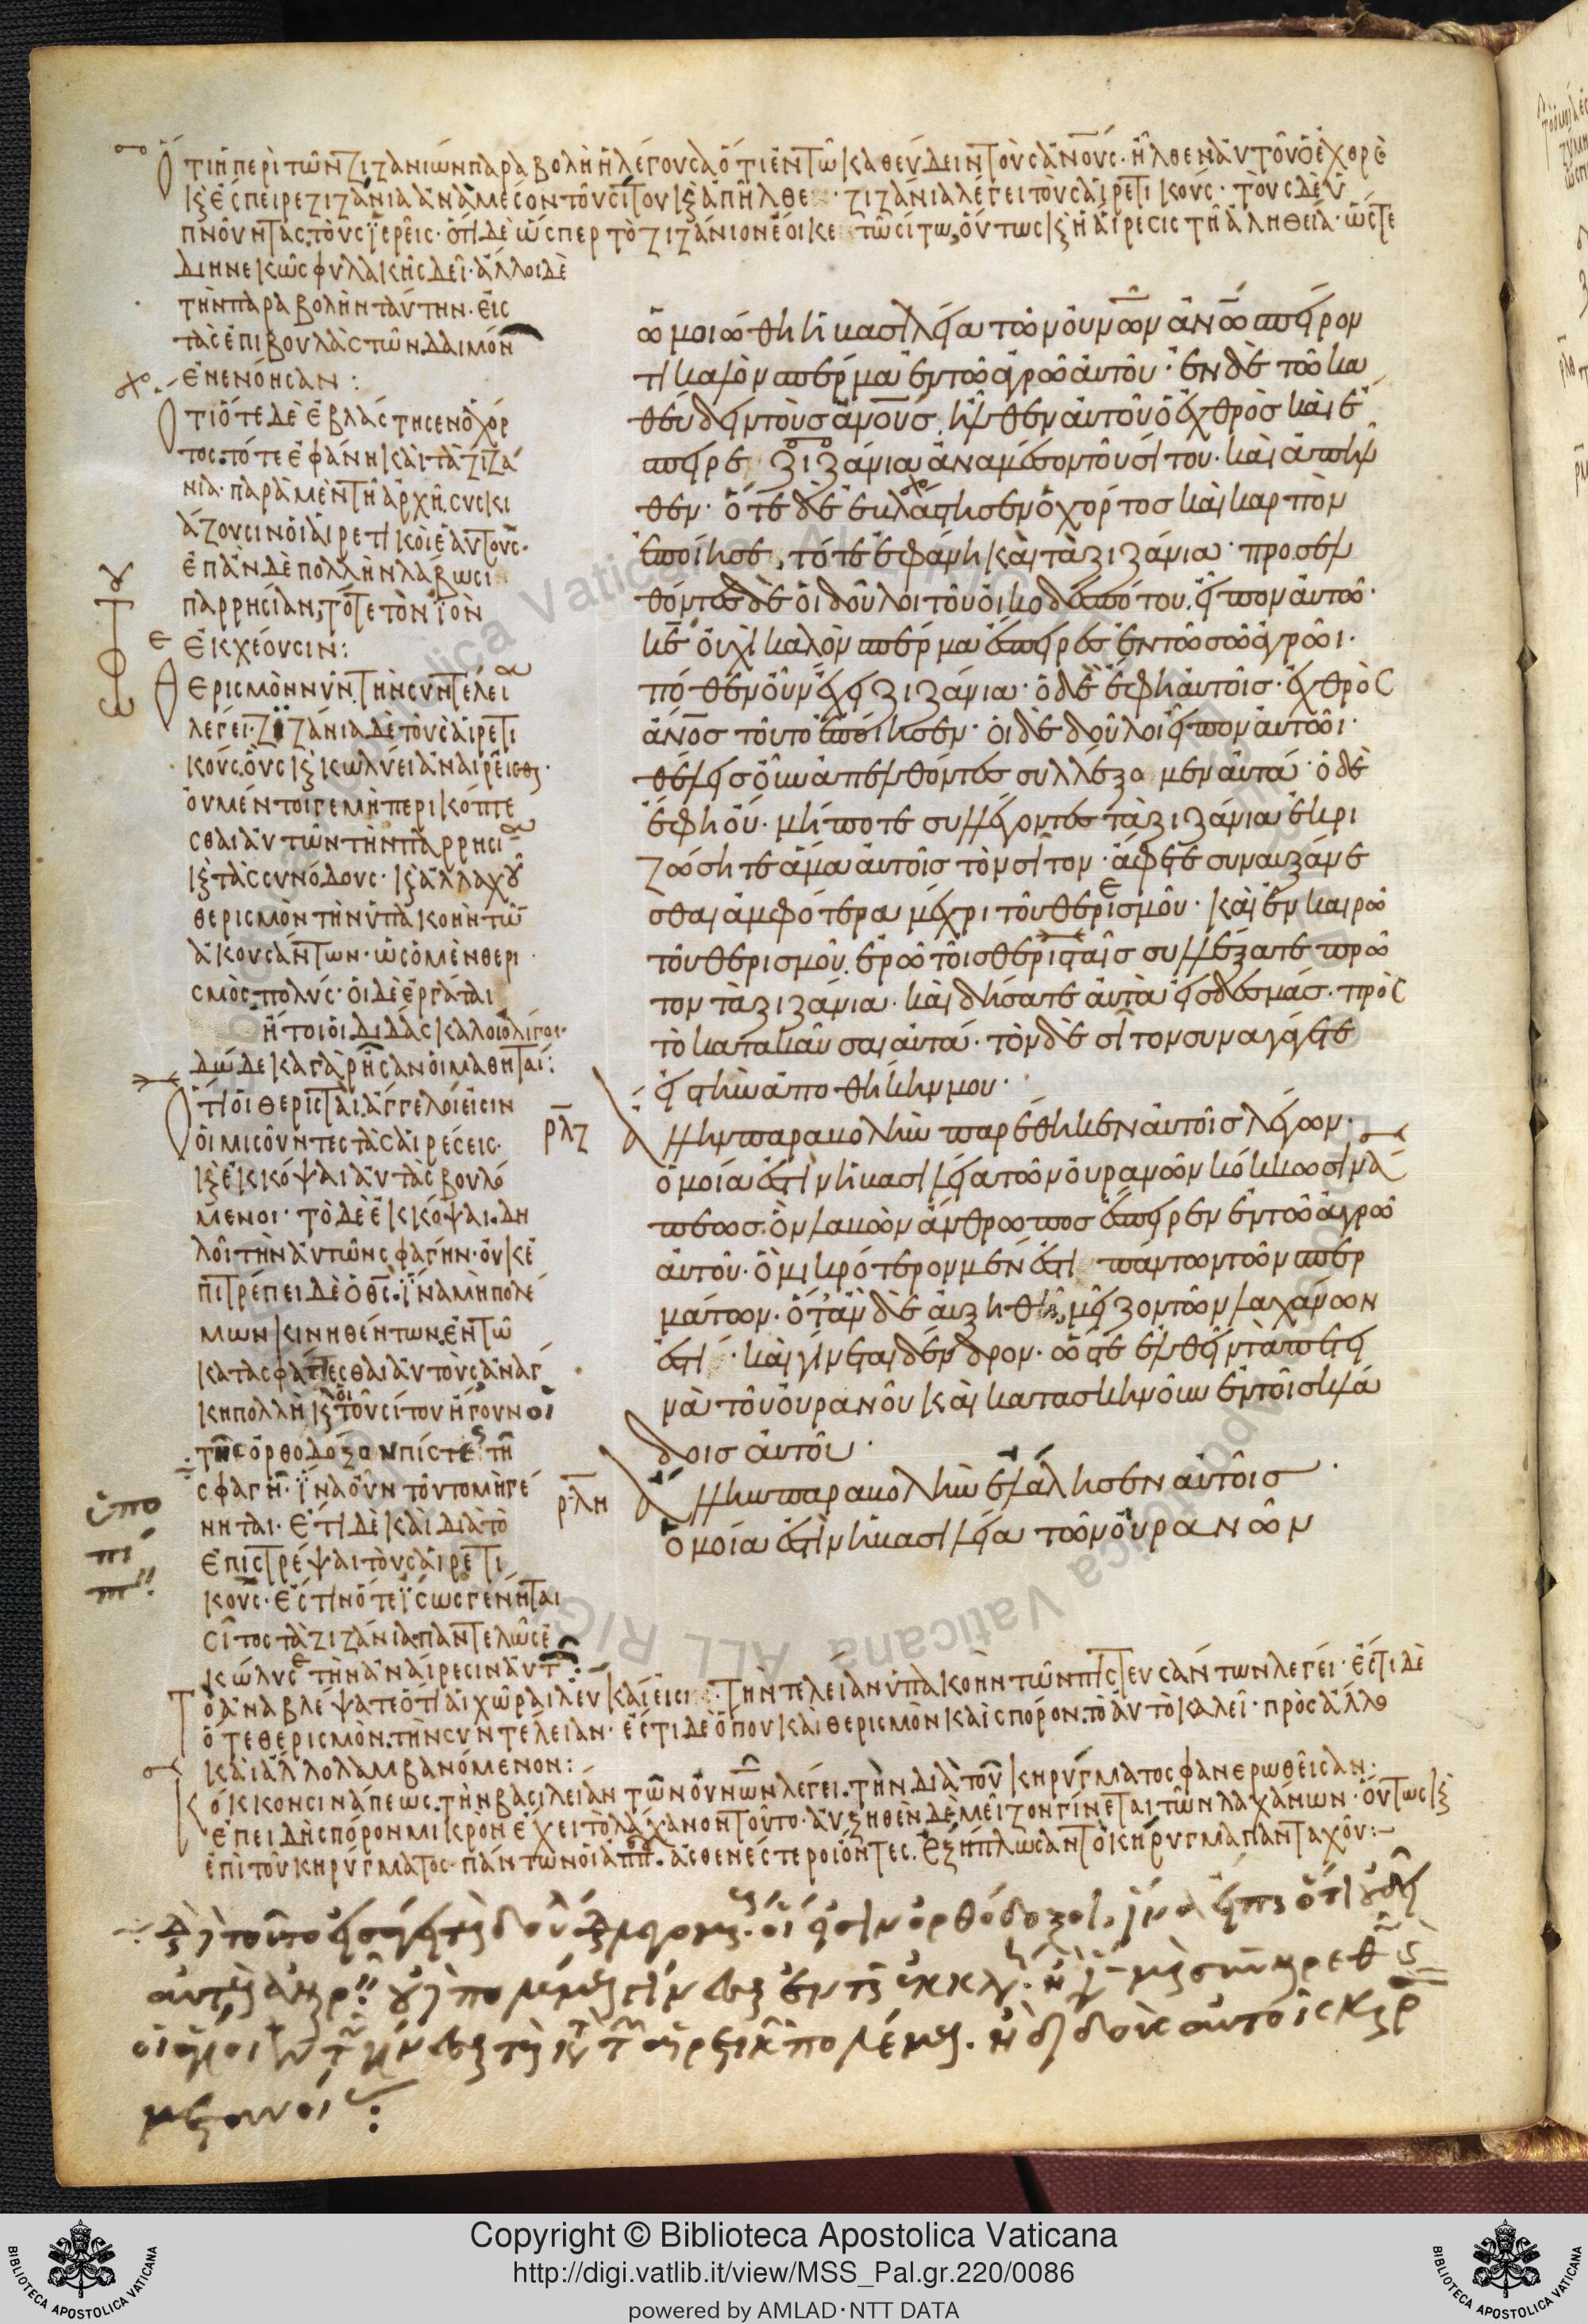 Ὅτι ἡ περὶ τῶν ζιζανίων παραβολὴ ἡ λέγουσα ὅτι ἐν τῶ καθεύδειν τοὺς ἀνους· ἦλθεν αὐτοῦ ὁ ἐχθρὸ
κ ἔσπειρε ζιζάνια ἀναμέσον τοῦ σίτου κ ἀπῆλθε· ζιζάνια λέγει τοὺς αἱρετικούς· τοὺς δὲ
τοὺς ἱερεῖς· ὅτι δὲ ὥσπερ τὸ ζιζάνιον ἔοικε τῶ σίτω, οὕτως κ ἡ αἵρεσις τῆ ἀληθεία· ὥστε
διηνεκῶς φυλακῆς δεῖ· ἄλλοι δὲ
τὴν παραβολὴν ταύτην· εἰς
τὰς ἐπιβουλὰς τῶν δαιμόν
ἐνενόησαν :
Ὅτι ὅτε δὲ ἐβλάστησεν ὁ χόρ
τος. τότε ἐφάνη καὶ τὰ ζιζά
νια· παρὰ μὲν τῆ ἀρχῆ. συσκι
άζουσιν οἱ αἱρετικοὶ ἑαυτούς·
ἐπὰν δὲ πολλὴν λάβωσι
παρρησίαν, τότε τὸν ἰὸν
ἐκχέουσιν :
Θερισμὸν νῦν τὴν συντέλεια
λέγει· ζιζάνια δὲ τοὺς αἱρετι
κούς. οὓς κ κωλύει ἀναιρεῖσθ·
οὐ μέν τοι γε μὴ περικόπτε
σθαι αὐτῶν τὴν παρρησία
κ τὰς συνόδους· κ ἀλλαχοῦ
θερισμὸν τὴν ὑπακοὴν τῶ
ἀκουσάντων· ὡς ὁ μὲν θερι
σμὸς πολύς· οἱ δὲ ἐργάται
ἤτοι οἱ διδάσκαλοι ὀλίγοι·
δώδεκα γὰρ ἦσαν οἱ μαθηταί :
Ὅτι οἱ θερισταὶ ἄγγελοί εἰσιν
οἱ μισοῦντες τὰς αἱρέσεις·
κ ἐκκόψαι αὐτὰς βουλό
μενοι· τὸ δὲ ἐκκόψαι. δη
λοῖ τὴν αὐτῶν σφαγήν· οὐκ ἐ
πιτρέπει δὲ ὁ θς. ἵνα μὴ πολέ
μων κινηθέντων. ἐν τῶ
κατασφάττεσθαι αὐτοὺς ἀνάγ
κη πολλὴ κ τοῦ σίτου ἤγουν οἱ
σφαγῆ· ἵνα οὖν τοῦτο μὴ γέ
νηται· ἔτι δὲ καὶ διὰ τὸ
ἐπιστρέψαι τοὺς αἱρετι
κούς· ἔστιν ὅτε ἴσως γένηται
σῖτος τὰ ζιζάνια παντελῶς ἐ
κώλυσε τὴν ἀναίρεσιν αὐτ
ὡμοιώθη ἡ βασιλεία τῶν οὐνῶν ἀνω σπείρον
τι καλὸν σπέρμα ἐν τῶ ἀγρῶ αὐτοῦ· ἐν δὲ τῶ κα
θεύδειν τοὺς ἀνους. ἦλθεν αὐτοῦ ὁ ἐχθρὸς καὶ ἔ
σπειρε ζιζάνια ἀναμέσον τοῦ σίτου· καὶ ἀπῆλ
θεν· ὅτε δὲ ἐβλάστησεν ὁ χόρτος καὶ καρπὸν
ἐποίησε, τότε ἐφάνη καὶ τὰ ζιζάνια· προσελ
θόντες δὲ οἱ δοῦλοι τοῦ οἰκοδεσπότου. εἶπον αὐτῶ·
κε οὐχὶ καλὸν σπέρμα ἔσπειρες ἐν τῶ σῶ ἀγρῶι·
πόθεν οὖν ἔχει ζιζάνια· ὁ δὲ ἔφη αὐτοῖς· ἐχθρὸς
ἀνος τοῦτο ἐποίησεν· οἱ δὲ δοῦλοι εἶπον αὐτῶι·
θέλεις οὖν ἀπελθόντες συλλέξομεν αὐτά· ὁ δὲ
ἔφη οὔ· μήποτε συλλέγοντες τὰ ζιζάνια ἐκρι
ζώσητε ἅμα αὐτοῖς τὸν σῖτον· ἄφετε συναυξάνε
σθαι ἀμφότερα μέχρι τοῦ θερισμοῦ· καὶ ἐν καιρῶ
τοῦ θερισμοῦ. ἐρῶ τοῖς θερισταῖς συλλέξατε πρῶ
τον τὰ ζιζάνια· καὶ δήσατε αὐτὰ εἰς δεσμάς· πρὸς
τὸ κατακαῦσαι αὐτά· τὸν δὲ σῖτον συναγάγετε
εἰς τὴν ἀποθήκην μου·
ρλζ Ἄλλην παραβολὴν παρέθηκεν αὐτοῖς λέγων·
ὁμοία ἐστὶν ἡ βασιλεία τῶν οὐρανῶν κόκκω σινά
πεως. ὃν λαβὼν ἄνθρωπος ἔσπειρεν ἐν τῶ ἀγρῶ
αὐτοῦ· ὃ μικρότερον μέν ἐστι πάντων τῶν σπερ
μάτων· ὅταν δὲ αὐξηθῆ, μεῖζον τῶν λαχάνων
ἐστί· καὶ γίνεται δένδρον· ὥστε ἐλθεῖν τὰ πετει
νὰ τοῦ οὐρανοῦ καὶ κατασκηνοῦν ἐν τοῖς κλά
δοις αὐτοῦ·
ρλη Ἄλλην παραβολὴν ἐλάλησεν αὐτοῖς·
Ὁμοία ἐστὶν ἡ βασιλεία τῶν οὐρανῶν
Τὸ ἀναβλέψατε ὅτι αἱ χῶραι λευκαί εἰσι· τὴν τελείαν ὑπακοὴν τῶν πιστευσάντων λέγει· ἔστι δὲ
ὅτε θερισμὸν. τὴν συντέλειαν· ἔστι δὲ ὅπου καὶ θερισμὸν καὶ σπόρον. τὸ αὐτὸ καλεῖ· πρὸς ἄλλο
καὶ ἄλλο λαμβανόμενον :
Κόκκον σινάπεως. τὴν βασιλείαν τῶν οὐνῶν λέγει. τὴν διὰ τοῦ κηρύγματος φανερωθεῖσαν·
ἐπειδὴ σπόρον μικρὸν ἔχει τὸ λάχανον τοῦτο· αὐξηθὲν δὲ μεῖζον γίνεται τῶν λαχάνων· οὕτως κ
ἐπὶ τοῦ κηρύγματος· πάντων οἱ ἀπ. ἀσθενέστεροι ὄντες. ἐξήπλωσαν τὸ κήρυγμα πανταχοῦ :
Copyright © Biblioteca Apostolica Vaticana
http://digi.vatlib.it/view/MSS_Pal.gr.220/0086
powered by AMLAD·NTT DATA
BIBLIOTECA APOSTOLICA VATICANA
BIBLIOTECA APOSTOLICA VATICANA